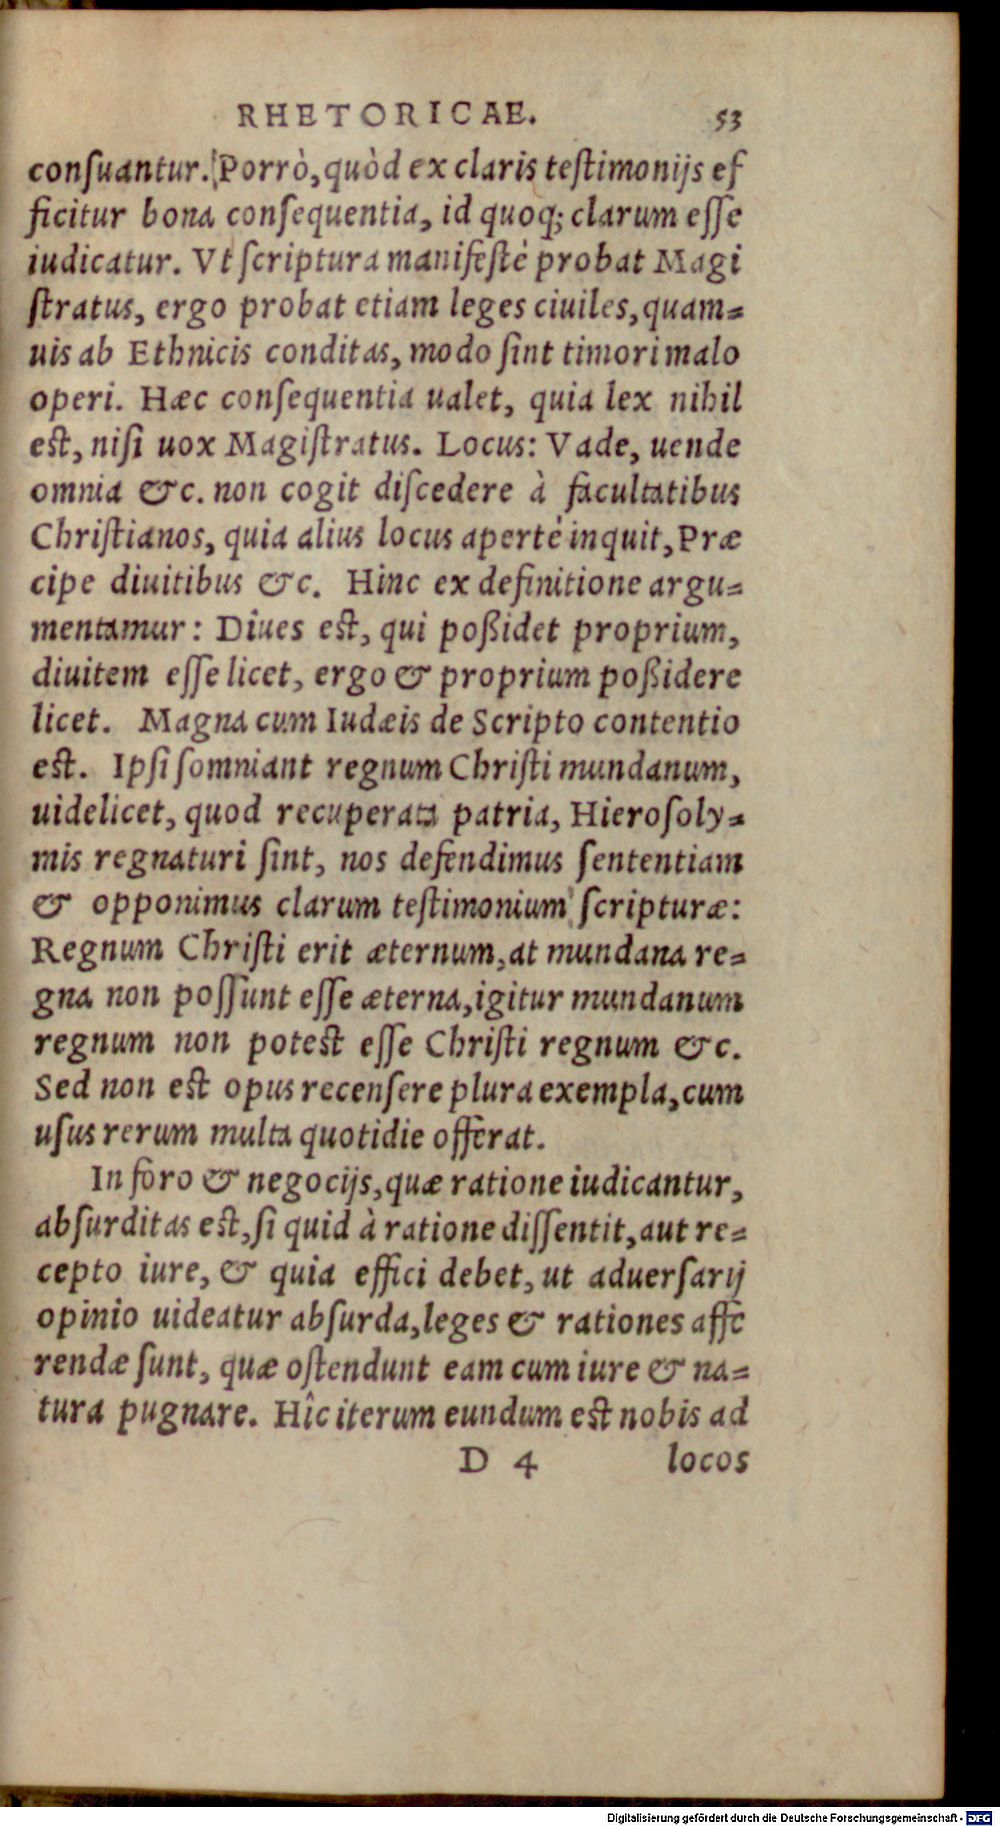 RHETORICAE. 53
conſuantur. Porrò, quòd ex claris teſtimonijs ef
ficitur bona conſequentia, id quoq; clarum eſſe
iudicatur. Vt ſcriptura manifeſtè probat Magi
ſtratus, ergo probat etiam leges ciuiles, quam=
uis ab Ethnicis conditas, modo ſint timori malo
operi. Hæc conſequentia ualet, quia lex nihil
eſt, niſi uox Magiſtratus. Locus: Vade, uende
omnia &c. non cogit diſcedere à facultatibus
Chriſtianos, quia alius locus apertè inquit, Præ
cipe diuitibus &c. Hinc ex definitione argu=
mentamur: Diues eſt, qui poßidet proprium,
diuitem eſſe licet, ergo & proprium poßidere
licet. Magna cum Iudæis de Scripto contentio
eſt. Ipſi ſomniant regnum Chriſti mundanum,
uidelicet, quod recuperata patria, Hieroſoly=
mis regnaturi ſint, nos defendimus ſententiam
& opponimus clarum teſtimonium ſcripturæ:
Regnum Chriſti erit æternum, at mundana re=
gna non poſſunt eſſe æterna, igitur mundanum
regnum non poteſt eſſe Chriſti regnum &c.
Sed non eſt opus recenſere plura exempla, cum
uſus rerum multa quotidie offerat.
In foro & negocijs, quæ ratione iudicantur,
abſurditas eſt, ſi quid à ratione diſſentit, aut re=
cepto iure, & quia effici debet, ut aduerſarij
opinio uideatur abſurda, leges & rationes affe
rendæ ſunt, quæ oſtendunt eam cum iure & na=
tura pugnare. Hîc iterum eundum eſt nobis ad
D 4 locos
Digitalisierung gefördert durch die Deutsche Forschungsgemeinschaft - DFG